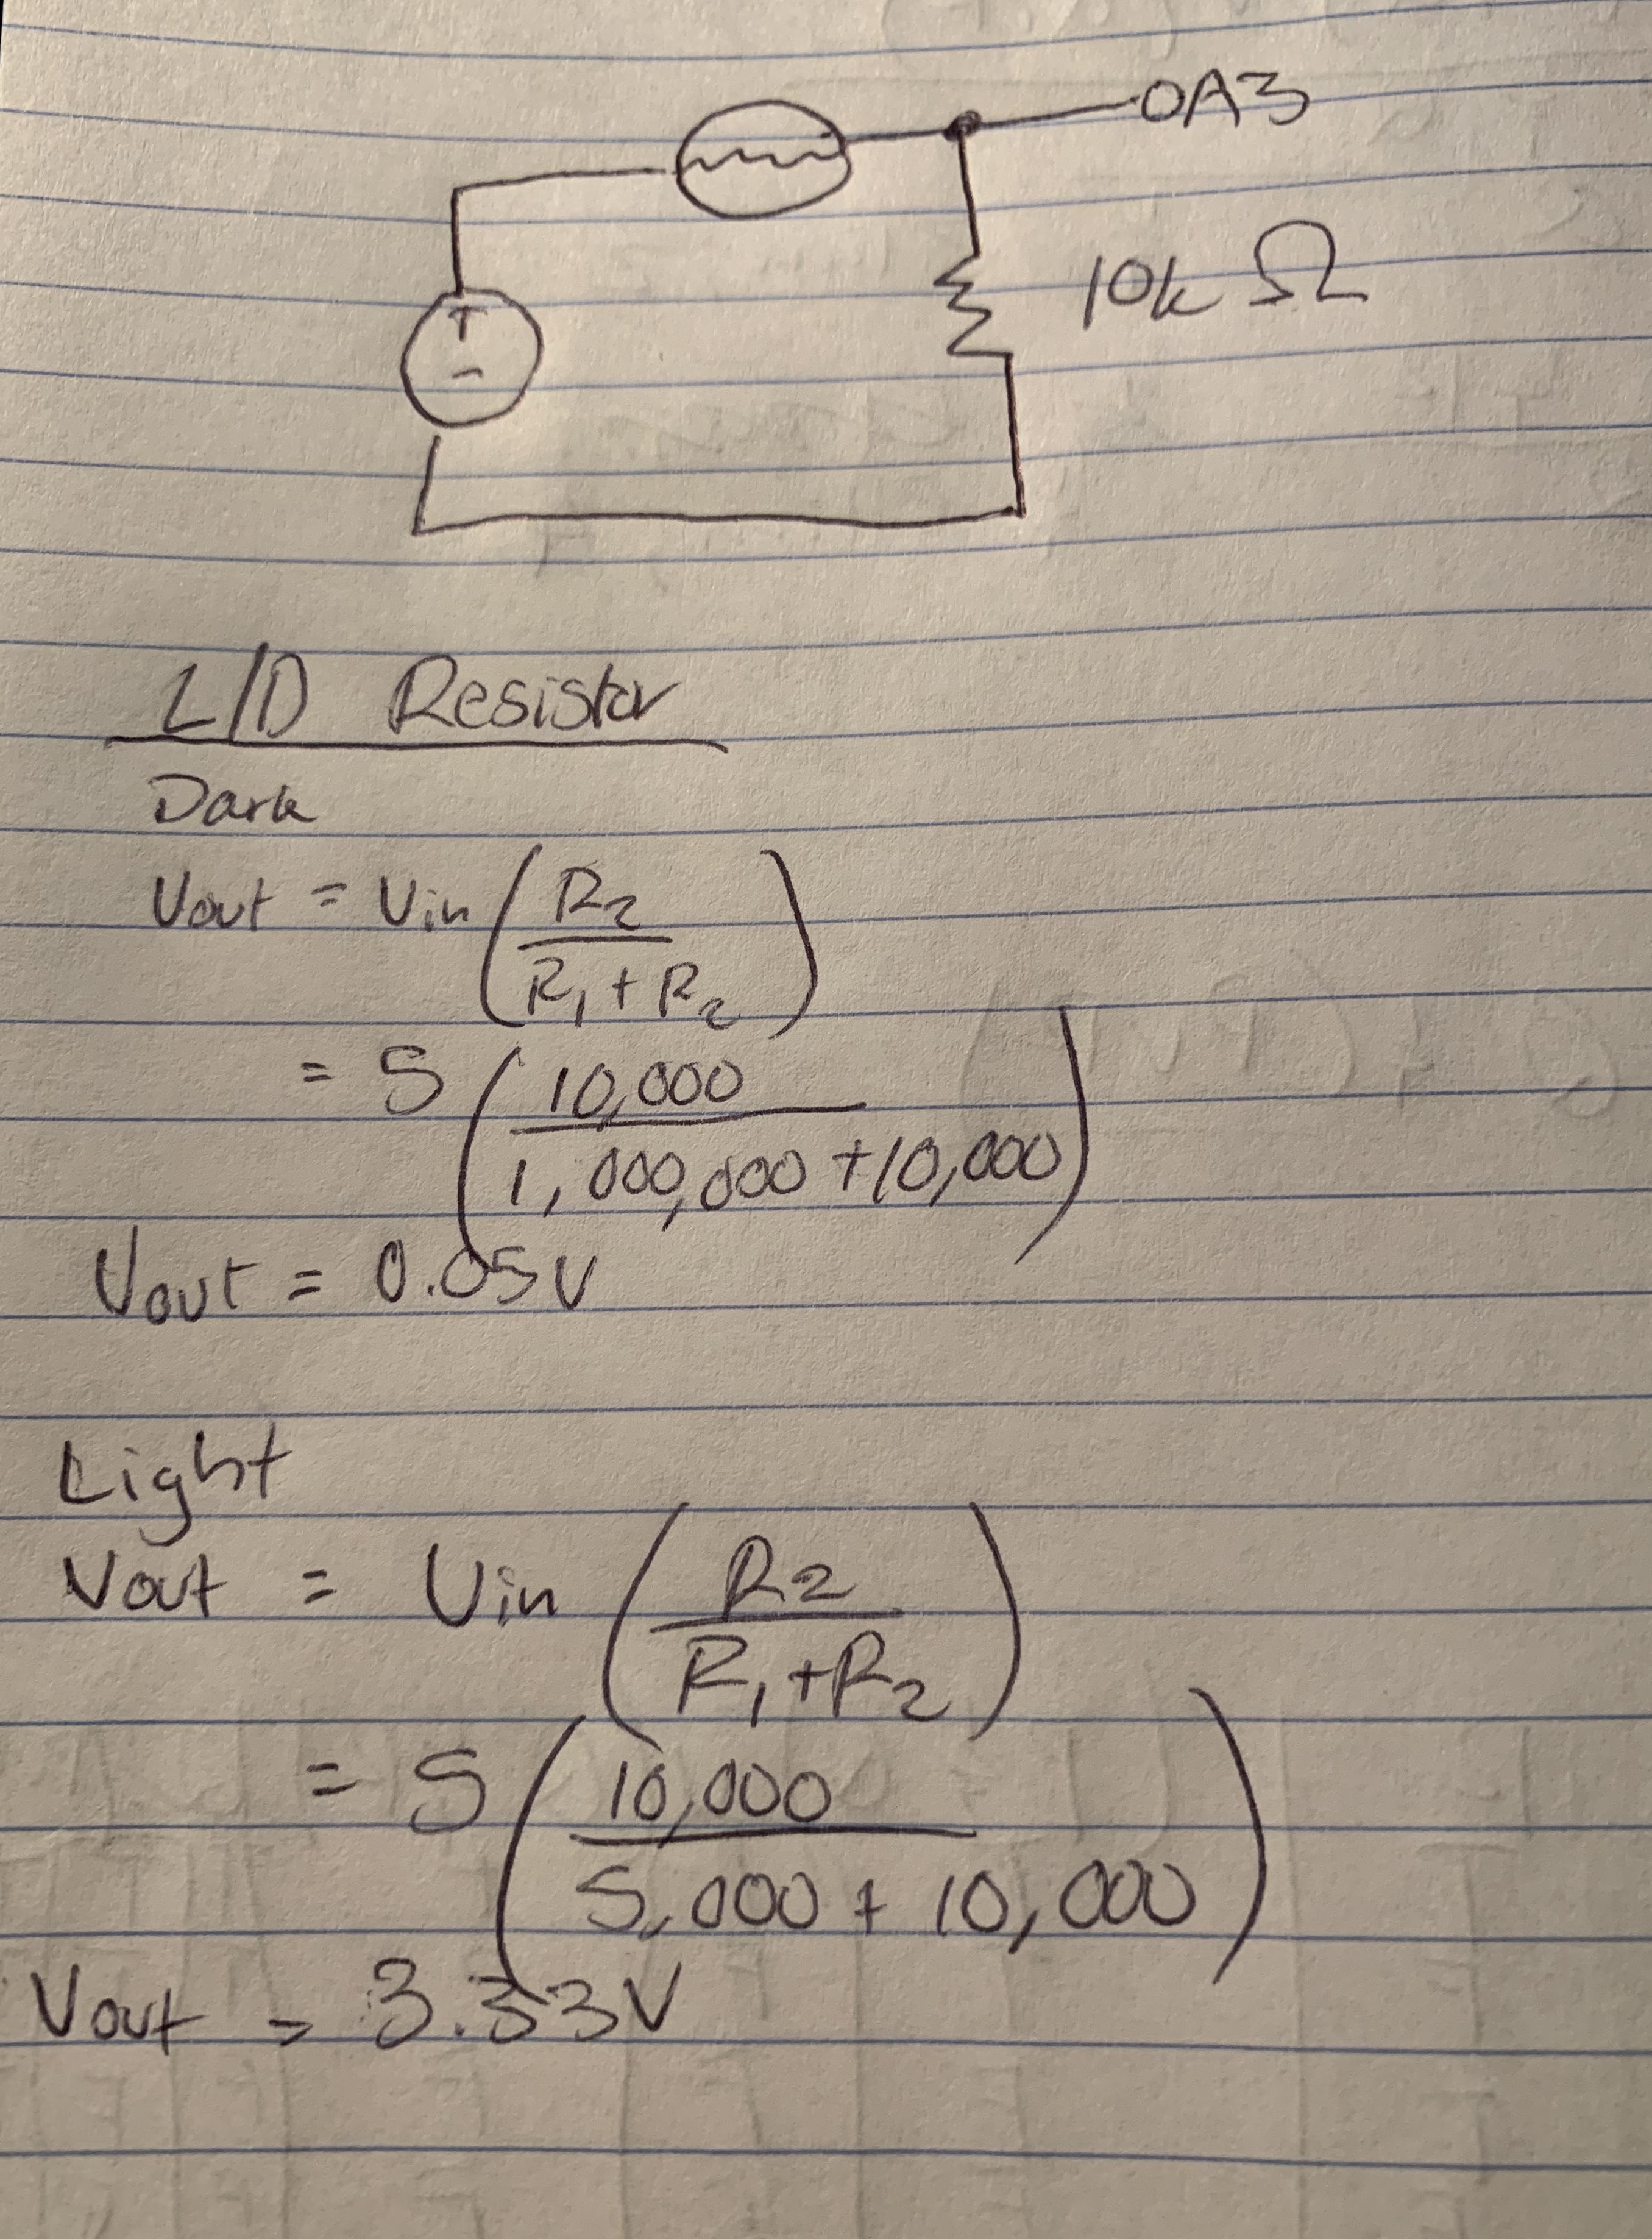 OA3
+
10k Ω
-
L/D Resistor
Dark
Vout = Vin ( R2 / R1 + R2 )
= 5 ( 10,000 / 1,000,000 + 10,000 )
Vout = 0.05V
Light
Vout = Vin ( R2 / R1 + R2 )
= 5 ( 10,000 / 5,000 + 10,000 )
Vout = 3.33V